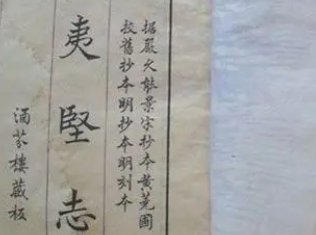 據嚴久能景宋抄本黃蕘圃
校舊抄本明抄本明刻本
夷堅志
涵芬樓藏板